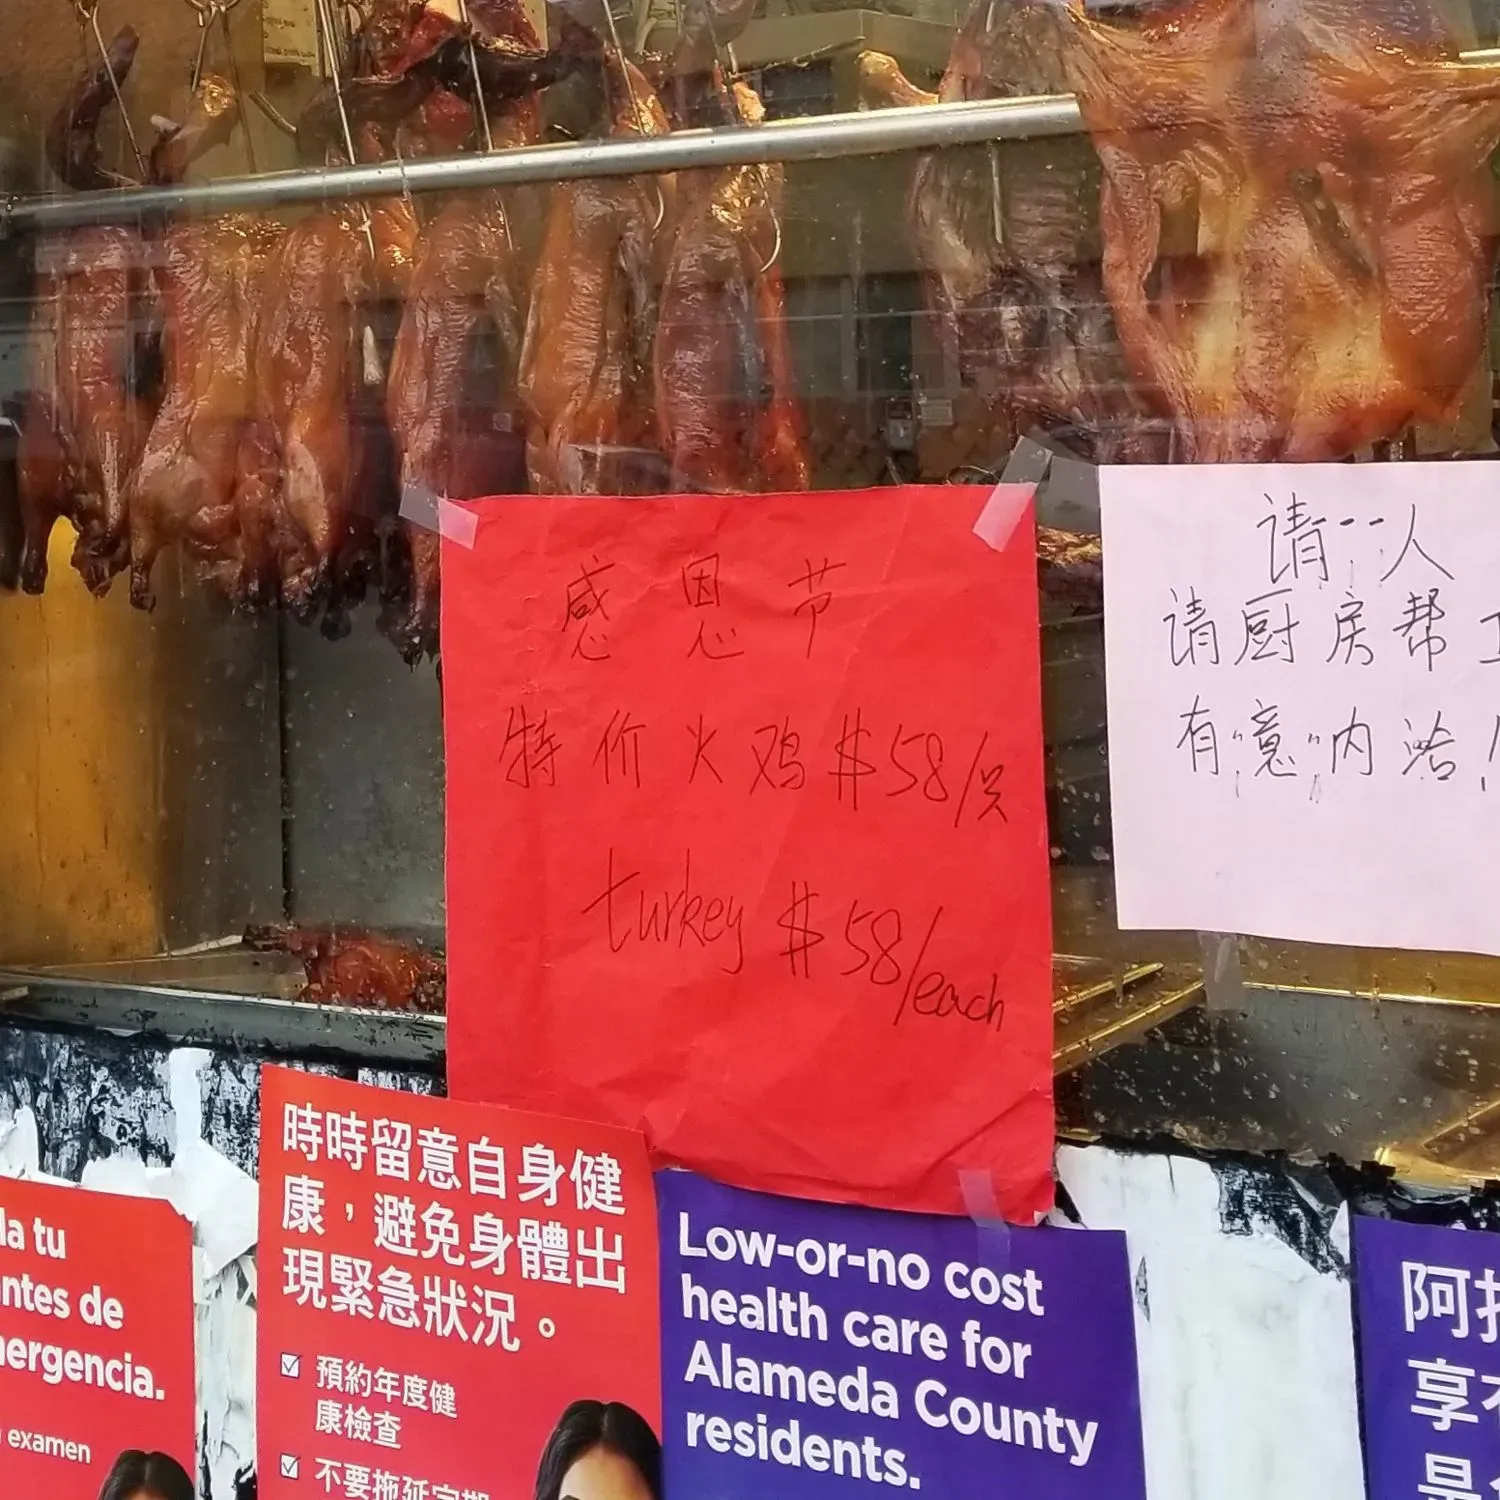 感恩节
特价火鸡$58/只
turkey $58/each
请一人
请厨房帮工
有意内洽!
la tu
ntes de
mergencia.
examen
時時留意自身健
康，避免身體出
現緊急狀況。
☑ 預約年度健
康檢查
☑ 不要拖延定期
Low-or-no cost
health care for
Alameda County
residents.
阿拉
享有
是